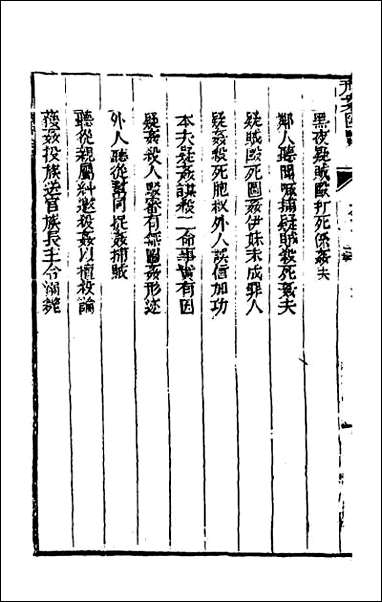 刑案匯覽
黑夜疑賊毆打死係姦夫
鄰人聽聞喊捕疑賊殺死姦夫
疑賊毆死圖姦伊妹未成罪人
疑姦殺死胞叔外人誤信加功
本夫疑姦謀殺二命事實有因
疑姦殺人毆審有無圖姦形迹
外人聽從幫同捉姦捕賊
聽從親屬糾邀殺姦以擅殺論
獲姦投族送官族長主令溺斃